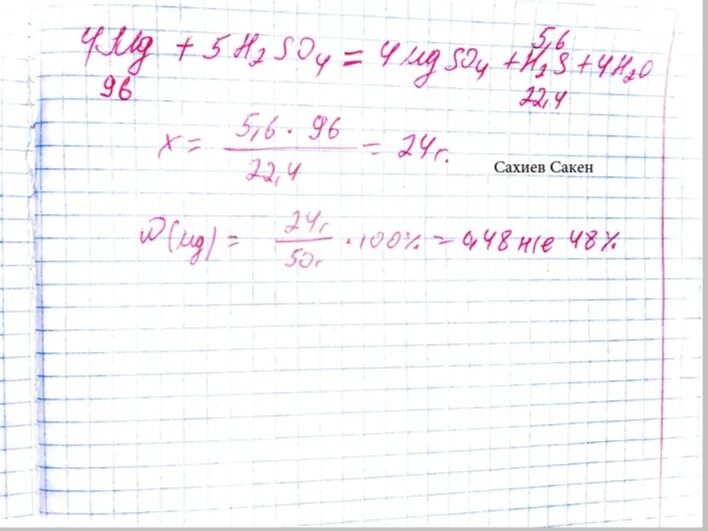 5,6
4Mg + 5H₂SO₄ = 4MgSO₄ + H₂S + 4H₂O
96 22,4
x = 5,6 · 96 / 22,4 = 24г.
Сахиев Сакен
ω(Mg) = 24г / 50г · 100% = 0,48 н/е 48%